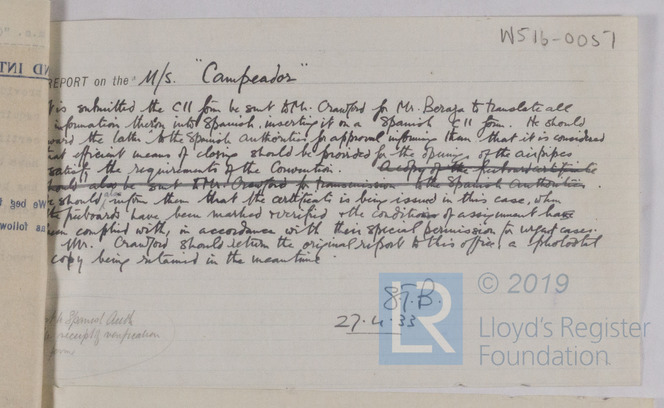 W516-0057
REPORT on the M/s. "Campeador"
is submitted the C11 form be sent to Mr. Crawford for Mr. Beraza to translate all
information thereon into Spanish, inserting it on a Spanish C11 form. He should
the latter to the Spanish Authorities for approval informing them that it is considered
that efficient means of closing should be provided for the openings of the airpipes
satisfy the requirements of the Convention. A copy of the freeboard certificate
should also be sent to Mr. Crawford for transmission to the Spanish Authorities.
should inform them that the certificate is being issued in this case, when
freeboards have been marked & verified & the conditions of assignment have
been complied with, in accordance with their special permission for urgent cases.
Mr. Crawford should return the original report to this office, a photostat
copy being retained in the meantime.
27.4.33
Spanish Auth
receipt of verification
forms
We beg t
as follow
© 2019
LR
Lloyd's Register
Foundation